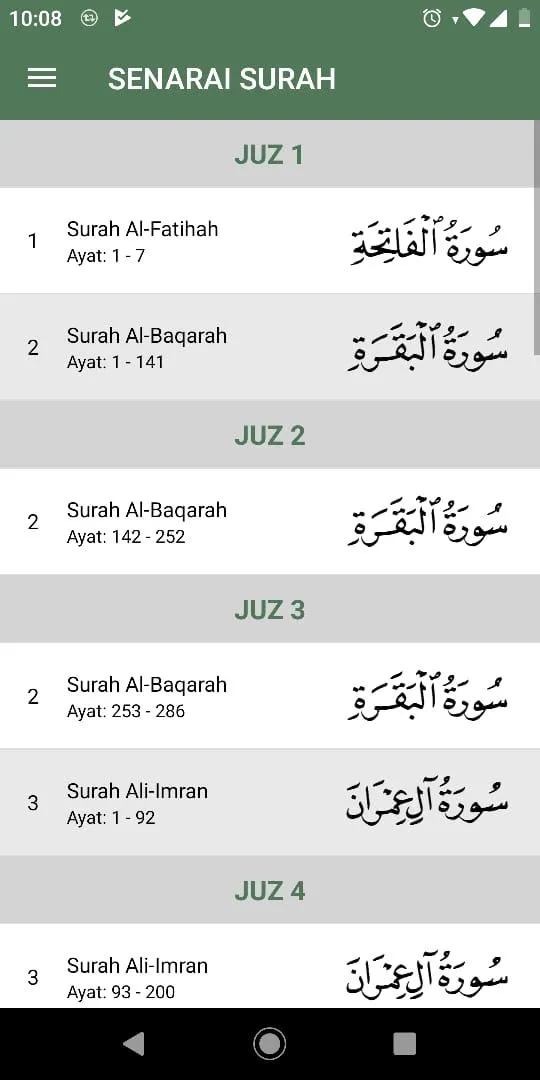 10:08
SENARAI SURAH
JUZ 1
1
Surah Al-Fatihah
سُورَةُ ٱلْفَاتِحَةِ
Ayat: 1 - 7
2
Surah Al-Baqarah
سُورَةُ ٱلْبَقَرَةِ
Ayat: 1 - 141
JUZ 2
2
Surah Al-Baqarah
سُورَةُ ٱلْبَقَرَةِ
Ayat: 142 - 252
JUZ 3
2
Surah Al-Baqarah
سُورَةُ ٱلْبَقَرَةِ
Ayat: 253 - 286
3
Surah Ali-Imran
سُورَةُ آلِ عِمْرَانَ
Ayat: 1 - 92
JUZ 4
3
Surah Ali-Imran
سُورَةُ آلِ عِمْرَانَ
Ayat: 93 - 200